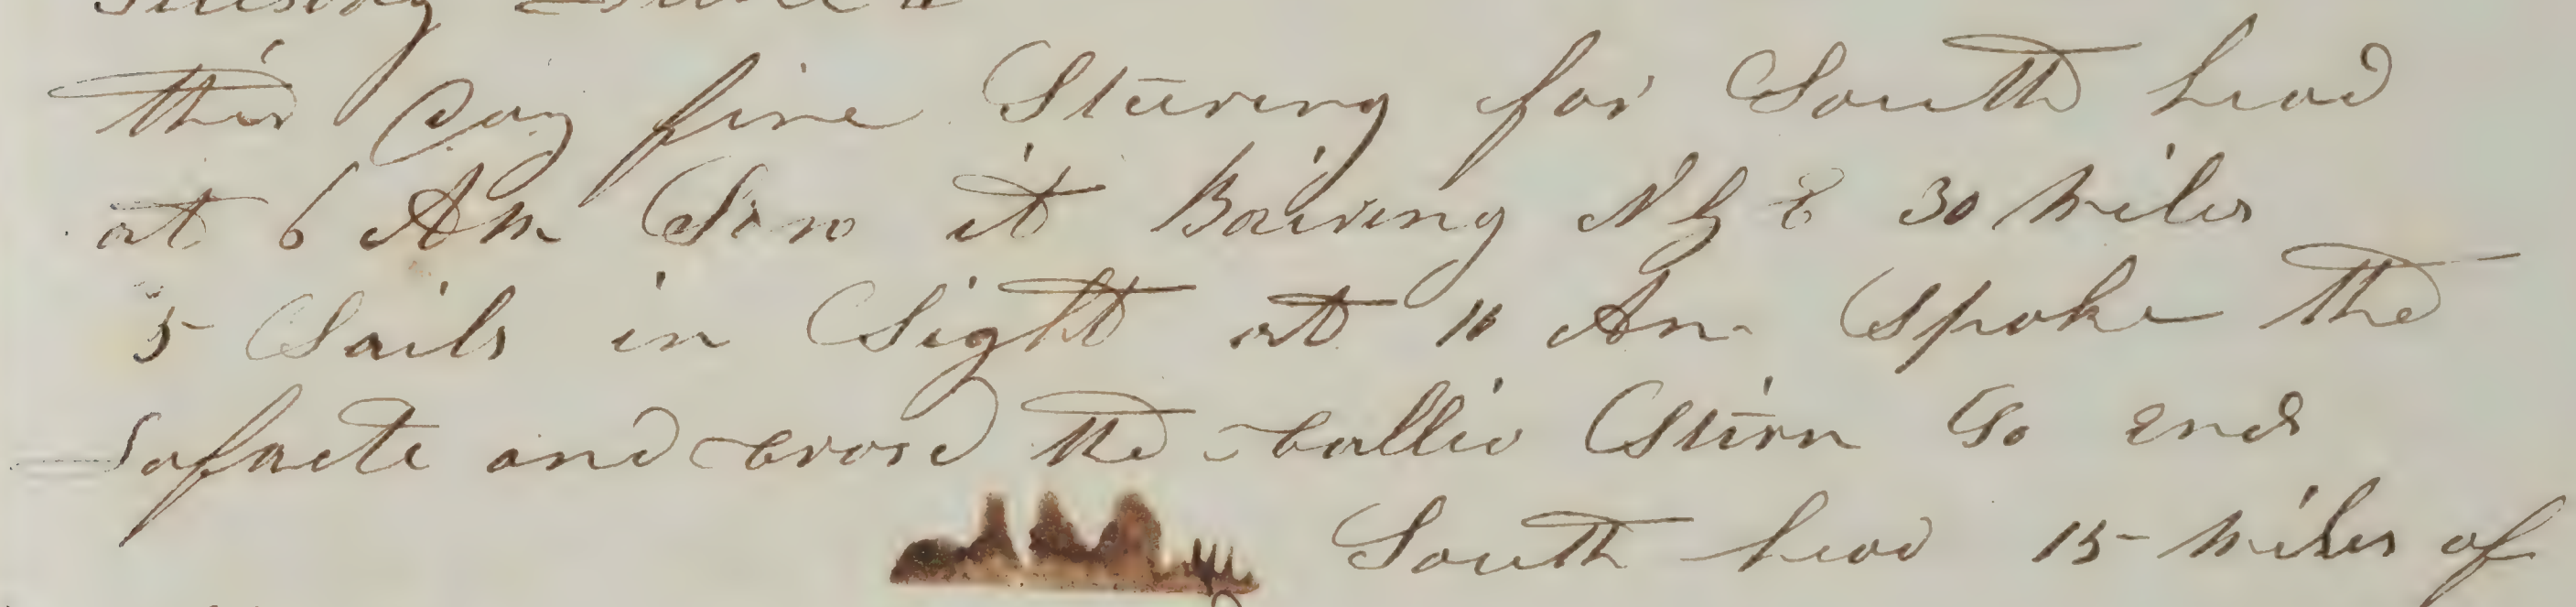 this Day fine Steering for South head
at 6 Am Saw it Baring N by E 30 Miles
5 Sails in Sight at 11 Am Spoke the
Lafaete and crosed the Stern So ends
South head 15 Miles of